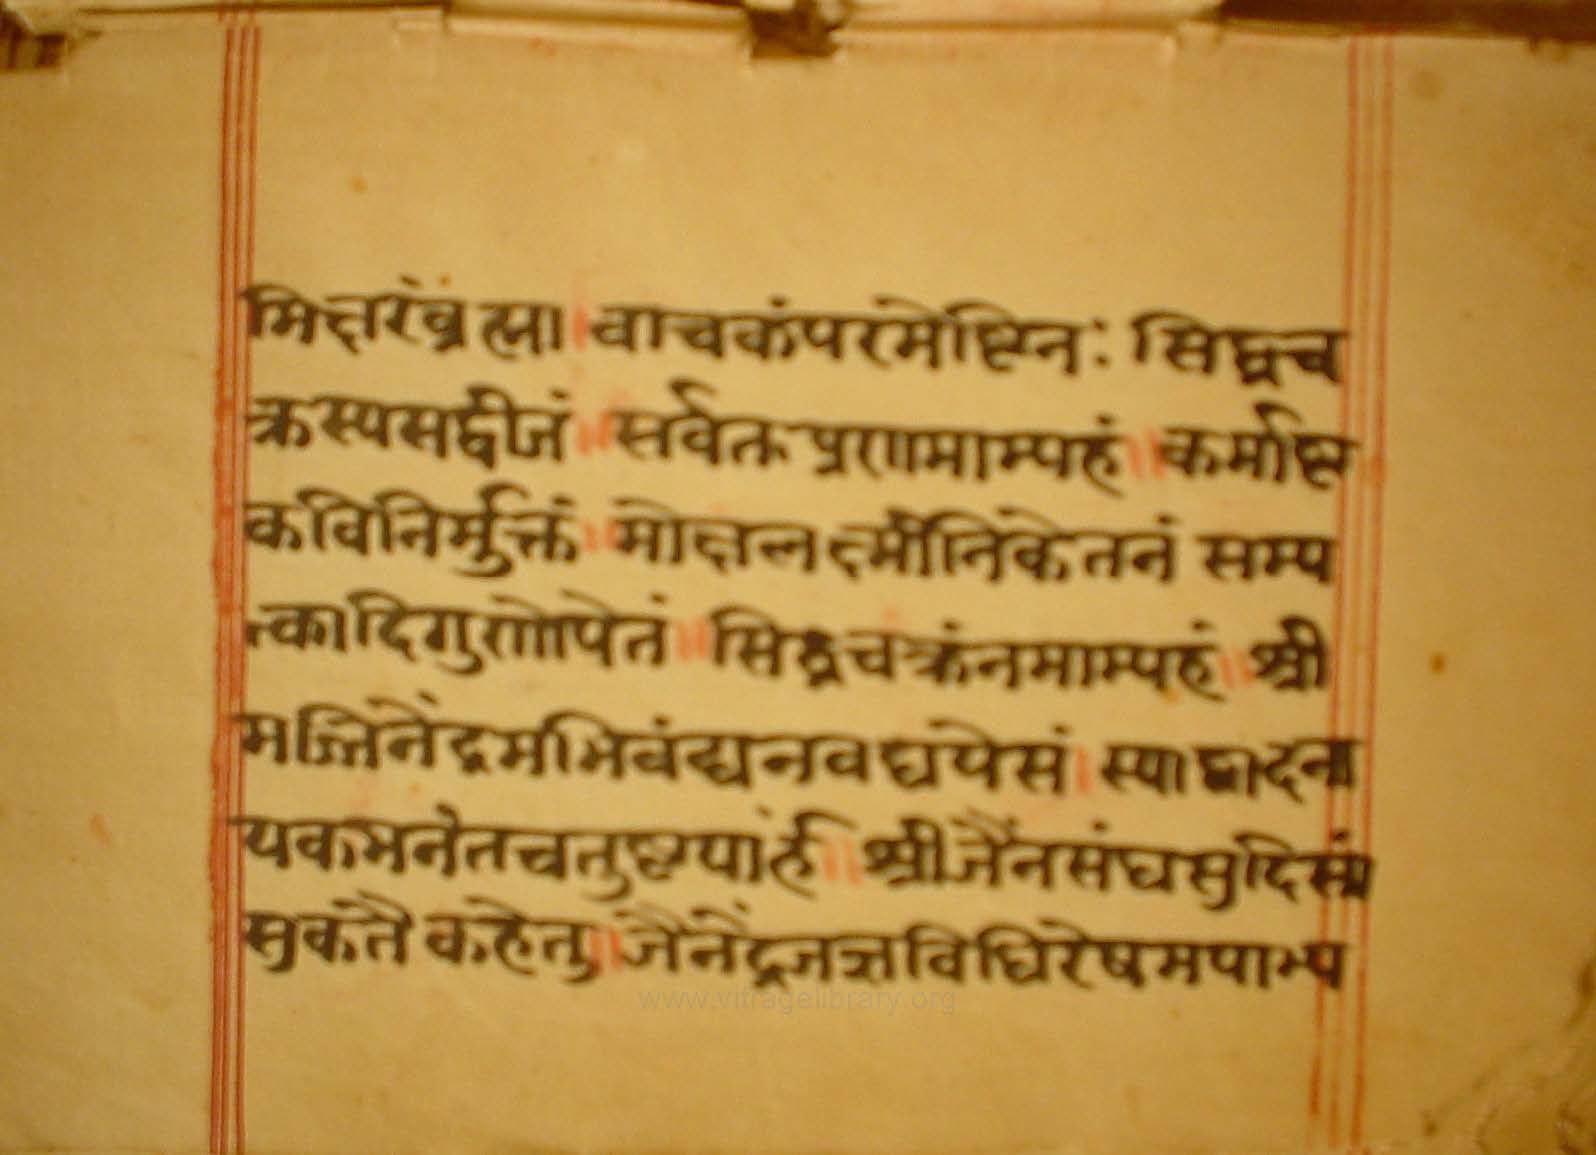 मित्तरंब्रह्मा। वाचकंपरमेष्टिनः सिद्धच
क्रस्पसद्वीजं॥ सर्वतप्रणमाम्पहं॥ कर्माष्ट
कविनिर्मुक्तं॥ मोक्षलक्ष्मीनिकेतनं सम्प
त्कादिगुणोपेतं॥ सिद्धचक्रंनमाम्पहं॥ श्री
मज्जिनेंद्रमभिवंद्यनवद्यपेसं। स्पाद्वादना
यकमनेतचतुष्टयार्हं॥ श्रीजैंनसंघसुदि
सुकतैकहेतु॥ जैनेंद्रजज्ञविधिरेषमपाभ्प
www.vitragelibrary.org